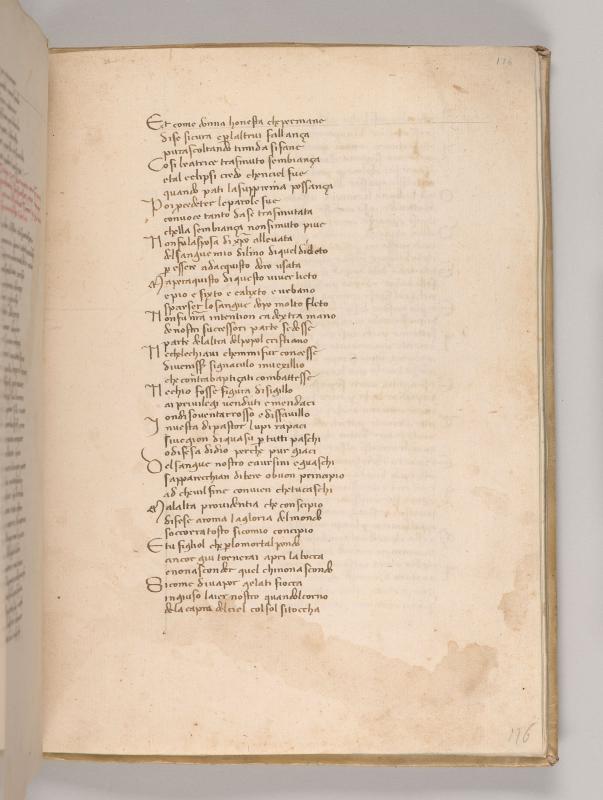 116
Et come donna honesta che permane
dise sicura e p laltrui fallança
pur ascoltando timida si fane
Cosi beatrice trasmuto sembiança
e tal eclipsi credo chenciel fue
quando pati la supprema possança
Poi procedeter le parole sue
con voce tanto da se trasmutata
che lla sembiança non si muto piue
Non fu la sposa di xpo allevata
del sangue mio di lino di quel di cleto
p essere ad acquisto doro usata
Ma per aquisto di questo viver lieto
e pio e sixto e calixto e urbano
sparser lo sangue dopo molto fleto
Non fu nra intention ca dextra mano
de nostri successori parte sedesse
parte dellaltra del popol cristiano
Ne che le chiavi che mi fur concesse
divenisse signaculo in vexillio
che contra baptiçati combattesse
Ne chio fosse figura di sigillo
ai privilegi venduti e mendaci
ondi soventa rrosso e disfavillo
In vesta di pastor lupi rapaci
si vegion di qua su p tutti paschi
o difesa didio perche pur giaci
Del sangue nostro caursini e guaschi
sapparecchian di bere o buon principio
ad che vil fine convien che tu caschi
Ma lalta providentia che con scipio
difese a roma la gloria del mondo
soccorra tosto si comio concipio
E tu figliol che p lo mortal pondo
ancor giu tornerai apri la bocca
e non asconder quel chi non ascondo
Si come di vapor gelati fiocca
in giuso laier nostro quandol corno
de la capra del ciel col sol si toccha
116